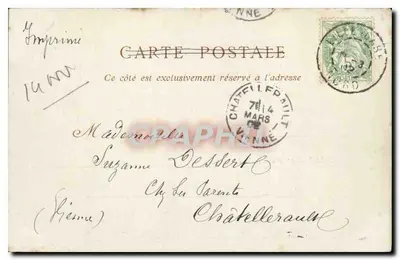 VIENNE
Imprimé
CARTE POSTALE
Ce côté est exclusivement réservé à l'adresse
CHATELLERAULT
MARS
VIENNE
CPAPHIL
Mademoiselle
Suzanne Dessert
Chz ses Parents
(Vienne) Châtellerault